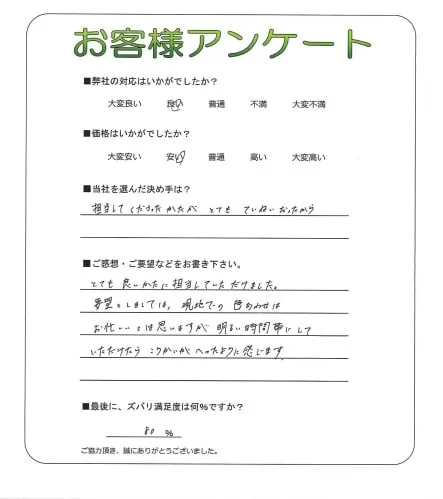 お客様アンケート
■弊社の対応はいかがでしたか?
大変良い 良い 普通 不満 大変不満
■価格はいかがでしたか?
大変安い 安い 普通 高い 大変高い
■当社を選んだ決め手は?
担当してくださったかたが とても ていねいだったから
■ご感想・ご要望などをお書き下さい。
とても良いかたに担当していただけました。
要望としましては、現地での 色あわせは
お忙しいとは思いますが 明るい時間帯にして
いただけたら こうかいが へったように感じます
■最後に、ズバリ満足度は何%ですか?
80 %
ご協力頂き、誠にありがとうございました。